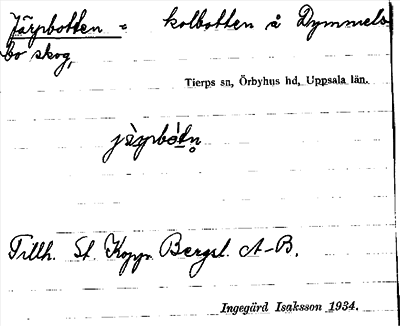 Järpbotten = kolbotten å Dymmels-
bo skog,
Tierps sn, Örbyhus hd, Uppsala län.
Tillh. St. Kopp. Bergsl. A-B.
Ingegärd Isaksson 1934.